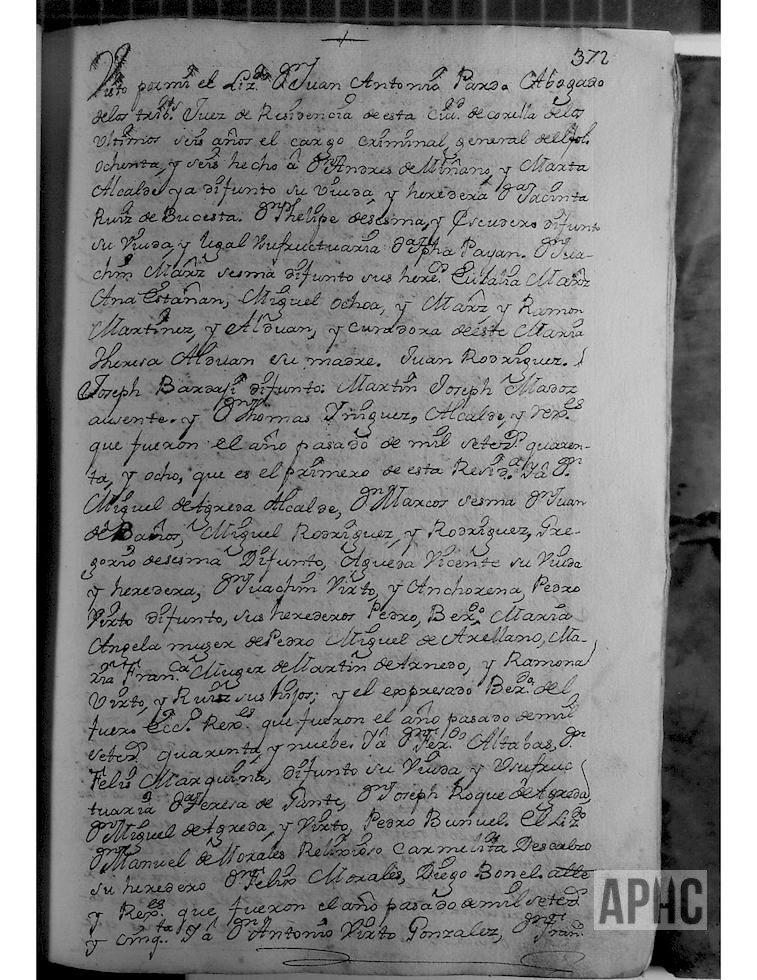 372
Visto por mi el Liz.do D.n Juan Antonio Pardo Abogado
de los trib.s Juez de Residencia de esta Ciu.d de corella de los
Ultimos seis años el cargo criminal, general del fol.
ochenta, y seis hecho â D.n Andres de Miñano, y Marta
Alcalde ya difunto su viuda, y heredera D.a Jacinta
Ruiz de Bucesta. D.n Phelipe de sesma, y Escudero difunto
su Viuda, y Usufructuaria D.a Jpha Payan. D.n Jua-
chin Marz sesma difunto sus hered.s Eulalia Marz
Ana Estañan, Miguel Ochoa, y Marz y Ramon
Martinez, y Alduan, y curadora de éste Maria
Theresa Alduan su madre. Juan Rodriguez.
Joseph Bardaji difunto. Martin Joseph Madoz
ausente. y D.n Thomas Yñiguez, Alcalde, y rex.es
que fueron el año pasado de mil setez.s quaren-
ta, y ocho, que es el primero de esta Resid.a Yâ D.n
Miguel de Agreda Alcalde, D.n Marcos sesma D.n Juan
de Baños, Miguel Rodriguez, y Rodriguez, Gre-
gorio de sesma Difunto, Agueda Vicente su Viuda
y heredera, D.n Juachin Virto, y Anchorena, Pedro
Virto difunto, sus herederos Pedro, Ber.do Maria
Angela muger de Pedro Miguel de Arellano, Ma-
ria Fran.ca Muger de Martin de Arnedo, y Ramona
Virto, y Ruiz sus hijos; y el expresado Ber.do del
fuero Ecc.o Rex.es que fueron el año pasado de mil
setez.s quarenta, y nuebe. Yâ D.n Fer.do Altabas, D.n
Felix Marquina, difunto su Viuda y Usufruc
tuaria D.a Teresa de Gante, D.n Joseph Roque de Agreda
D.n Miguel de Agreda, y Virto, Pedro Buñuel. El Liz.do
D.n Manuel de Morales Relixioso Carmelita Descalzo
su heredero D.n Felix Morales, Diego Bonel alle
y Rex.es que fueron el año pasado de mil setez.s
y cinq.ta Yâ D.n Antonio Virto Gonzalez, D.n Fran.
APHC